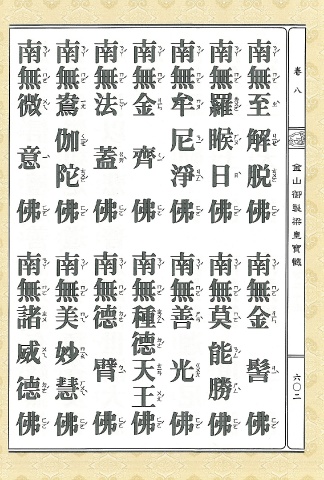 卷八
金山御製梁皇寶懺
六〇二
南無至解脫佛 南無金髻佛
南無羅睺日佛 南無莫能勝佛
南無牟尼淨佛 南無善光佛
南無金齊佛 南無種德天王佛
南無法蓋佛 南無德臂佛
南無鴦伽陀佛 南無美妙慧佛
南無微意佛 南無諸威德佛